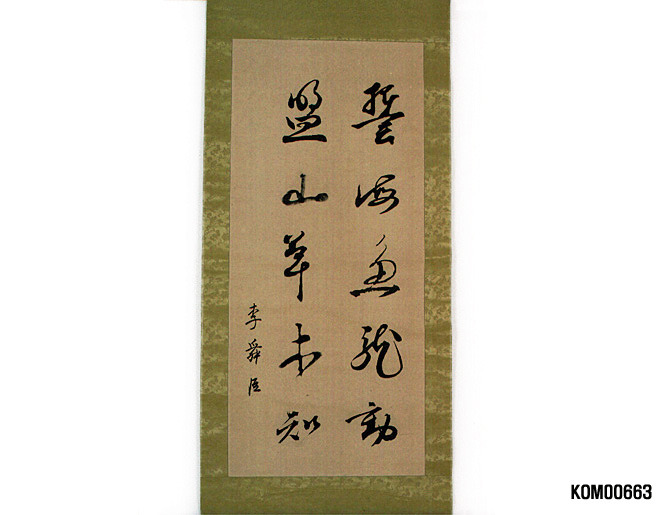 誓海魚龍動
盟山草木知
李舜臣
KOM00663